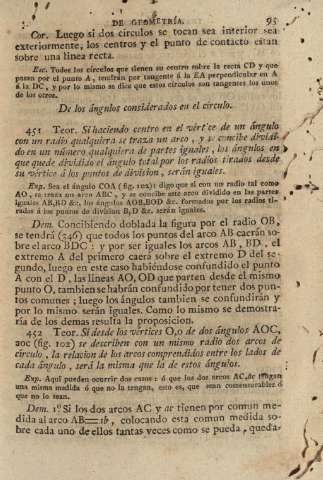 DE GEOMETRÍA. 95
Cor. Luego si dos círculos se tocan sea interior sea
exteriormente, los centros y el punto de contacto están
sobre una línea recta.
Esc. Todos los círculos que tienen su centro sobre la recta CD y que
pasen por el punto A, tendrán por tangente á la EA perpendicular en A
á la DC, y por lo mismo se dice que estos círculos son tangentes los unos
de los otros.
De los ángulos considerados en el círculo.
451 Teor. Si haciendo centro en el vértice de un ángulo
con un radio qualquiera se traza un arco, y se concibe dividi-
do en un número qualquiera de partes iguales, los ángulos en
que quede dividido el ángulo total por los radios tirados desde
su vértice á los puntos de division, serán iguales.
Exp. Sea el ángulo COA (fig. 102): digo que si con un radio tal como
AO, se traza un arco ABC, y se concibe este arco dividido en las partes
iguales AB,BD &c. los ángulos AOB,BOD &c. formados por los radios ti-
rados á los puntos de division B,D &c. serán iguales.
Dem. Concibiendo doblada la figura por el radio OB,
se tendrá (346) que todos los puntos del arco AB caerán so-
bre el arco BDC: y por ser iguales los arcos AB, BD, el
extremo A del primero caerá sobre el extremo D del se-
gundo, luego en este caso habiéndose confundido el punto
A con el D, las líneas AO, OD que parten desde el mismo
punto O, tambien se habrán confundido por tener dos pun-
tos comunes; luego los ángulos tambien se confundirán y
por lo mismo serán iguales. Como lo mismo se demostra-
ría de los demas resulta la proposicion.
452 Teor. Si desde los vértices O,o de dos ángulos AOC,
aoc (fig. 102) se describen con un mismo radio dos arcos de
círculo, la relacion de los arcos comprendidos entre los lados de
cada ángulo, será la misma que la de estos ángulos.
Exp. Aquí pueden ocurrir dos casos: ó que los dos arcos AC,ac tengan
una misma medida ó que no la tengan, esto es, que sean comensurables ó
que no lo sean.
Dem. 1.º Si los dos arcos AC y ac tienen por comun me-
dida al arco AB=ab, colocando esta comun medida so-
bre cada uno de ellos tantas veces como se pueda, queda-